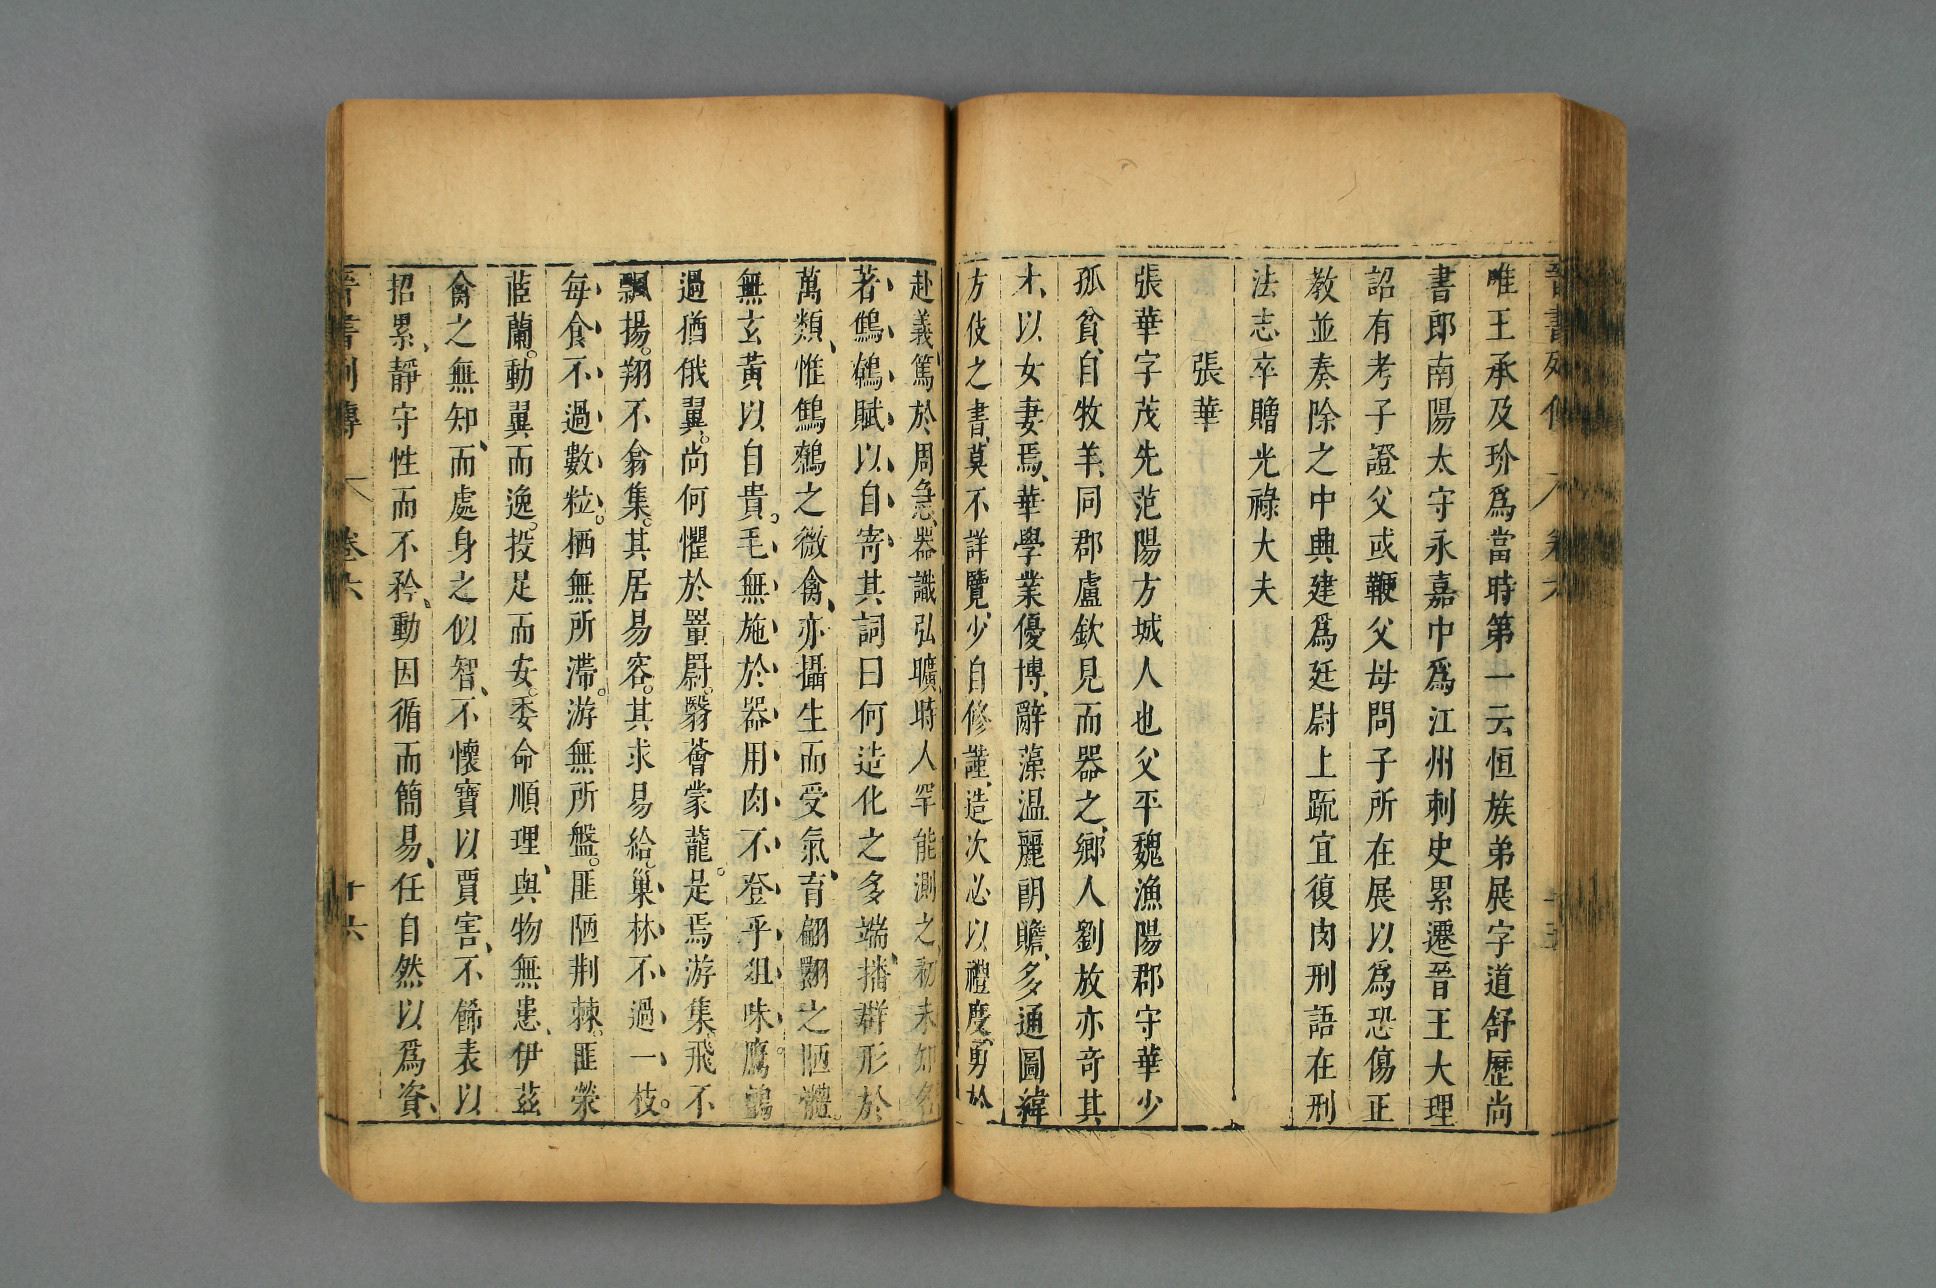 晉書列傳 卷六 十五
唯王承及玠爲當時第一云恒族弟展字道舒歷尚
書郎南陽太守永嘉中爲江州刺史累遷晉王大理
詔有考子證父或鞭父母問子所在展以爲恐傷正
教並奏除之中典建爲廷尉上疏宜復肉刑語在刑
法志卒贈光祿大夫
張華
張華字茂先范陽方城人也父平魏漁陽郡守華少
孤貧、自牧羊、同郡盧欽見而器之、鄉人劉放亦奇其
才、以女妻焉、華學業優博、辭藻温麗朗贍、多通圖緯
方伎之書、莫不詳覽、少自修謹、造次必以禮度、勇於
赴義、篤於周急、器識弘曠、時人罕能測之、初未知名
若鷦鷯賦以自寄其詞曰何造化之多端、播群形於
萬類、惟鷦鷯之微禽、亦攝生而受氣、育翩翾之陋體。
無玄黃以自貴。毛無施於器用肉不登乎俎味。鷹鸇
過猶俄翼。尚何懼於罿罻。翳薈蒙蘢。是焉游集飛不
飄揚。翔不翕集。其居易容。其求易給。巢林不過一枝。
每食不過數粒。栖無所滯。游無所盤。匪陋荆棘。匪榮
茝蘭。動翼而逸。投足而安。委命順理、與物無患、伊茲
禽之無知、而處身之似智、不懷寶以賈害、不飾表以
招累、靜守性而不矜、動因循而簡易、任自然以爲資、
晉書列傳 卷六 十六